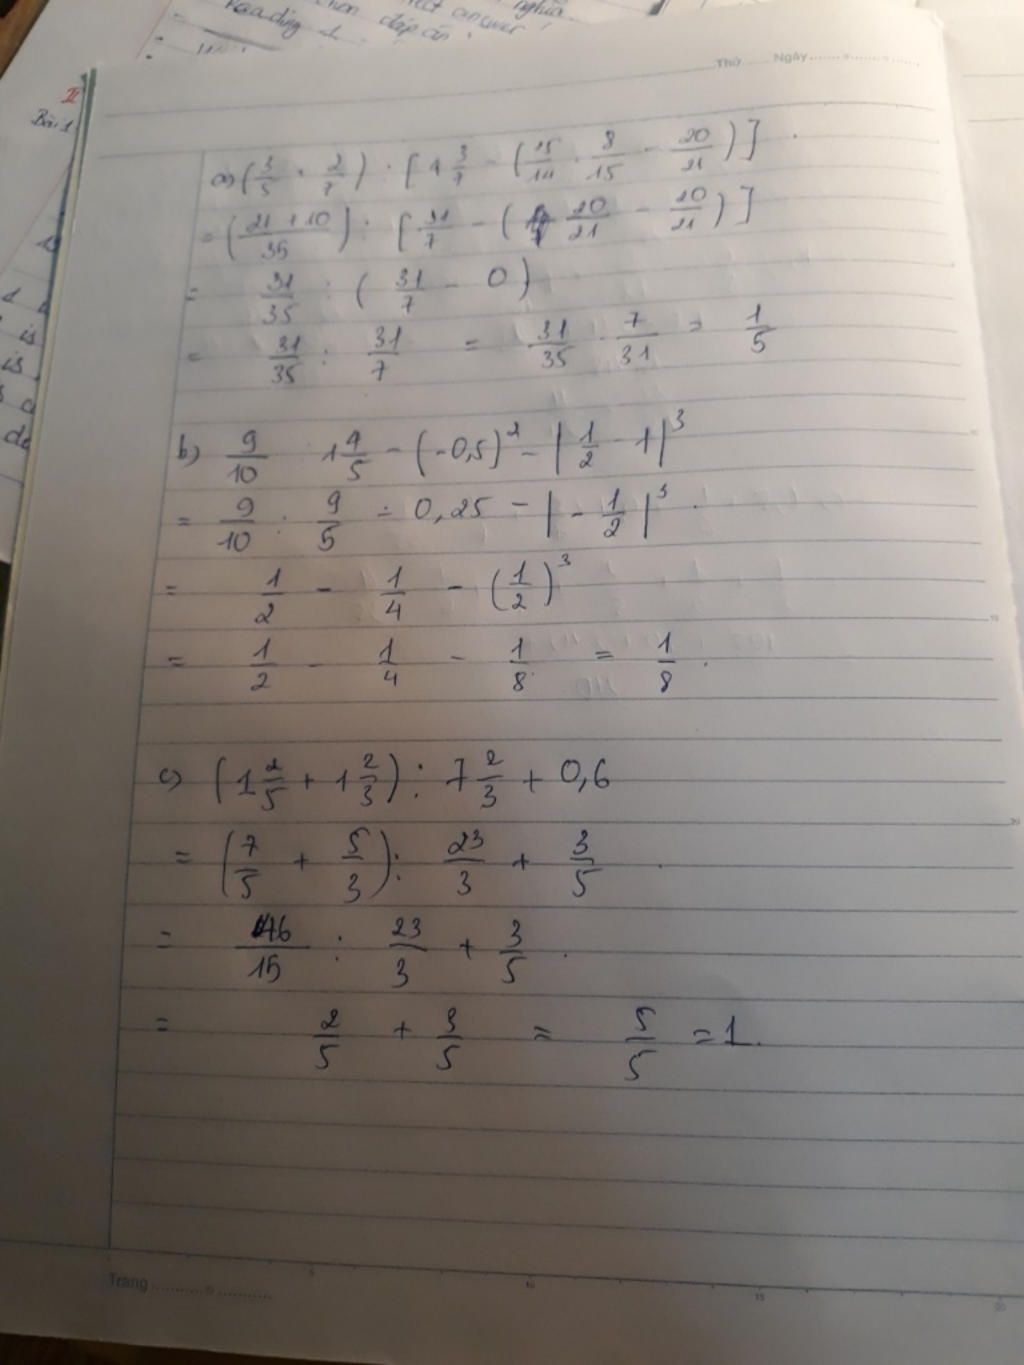 nghĩa
Reading 1 chọn đáp án.
II
Bài 1
is
is
Thứ ........ Ngày ...................
a) (3/5 + 2/7) : [4 3/7 - (25/14 . 8/15 - 20/21)]
= (21 + 10)/35 : [31/7 - (20/21 - 20/21)]
= 31/35 : (31/7 - 0)
= 31/35 : 31/7 = 31/35 . 7/31 = 1/5
b) 9/10 : 1 4/5 - (-0,5)² - |1/2 - 1|³
= 9/10 : 9/5 - 0,25 - |-1/2|³
= 1/2 - 1/4 - (1/2)³
= 1/2 - 1/4 - 1/8 = 1/8.
c) (1 2/5 + 1 2/3) : 7 2/3 + 0,6
= (7/5 + 5/3) : 23/3 + 3/5
= 46/15 : 23/3 + 3/5
= 2/5 + 3/5 = 5/5 = 1.
Trang ......................
5 10 15 20